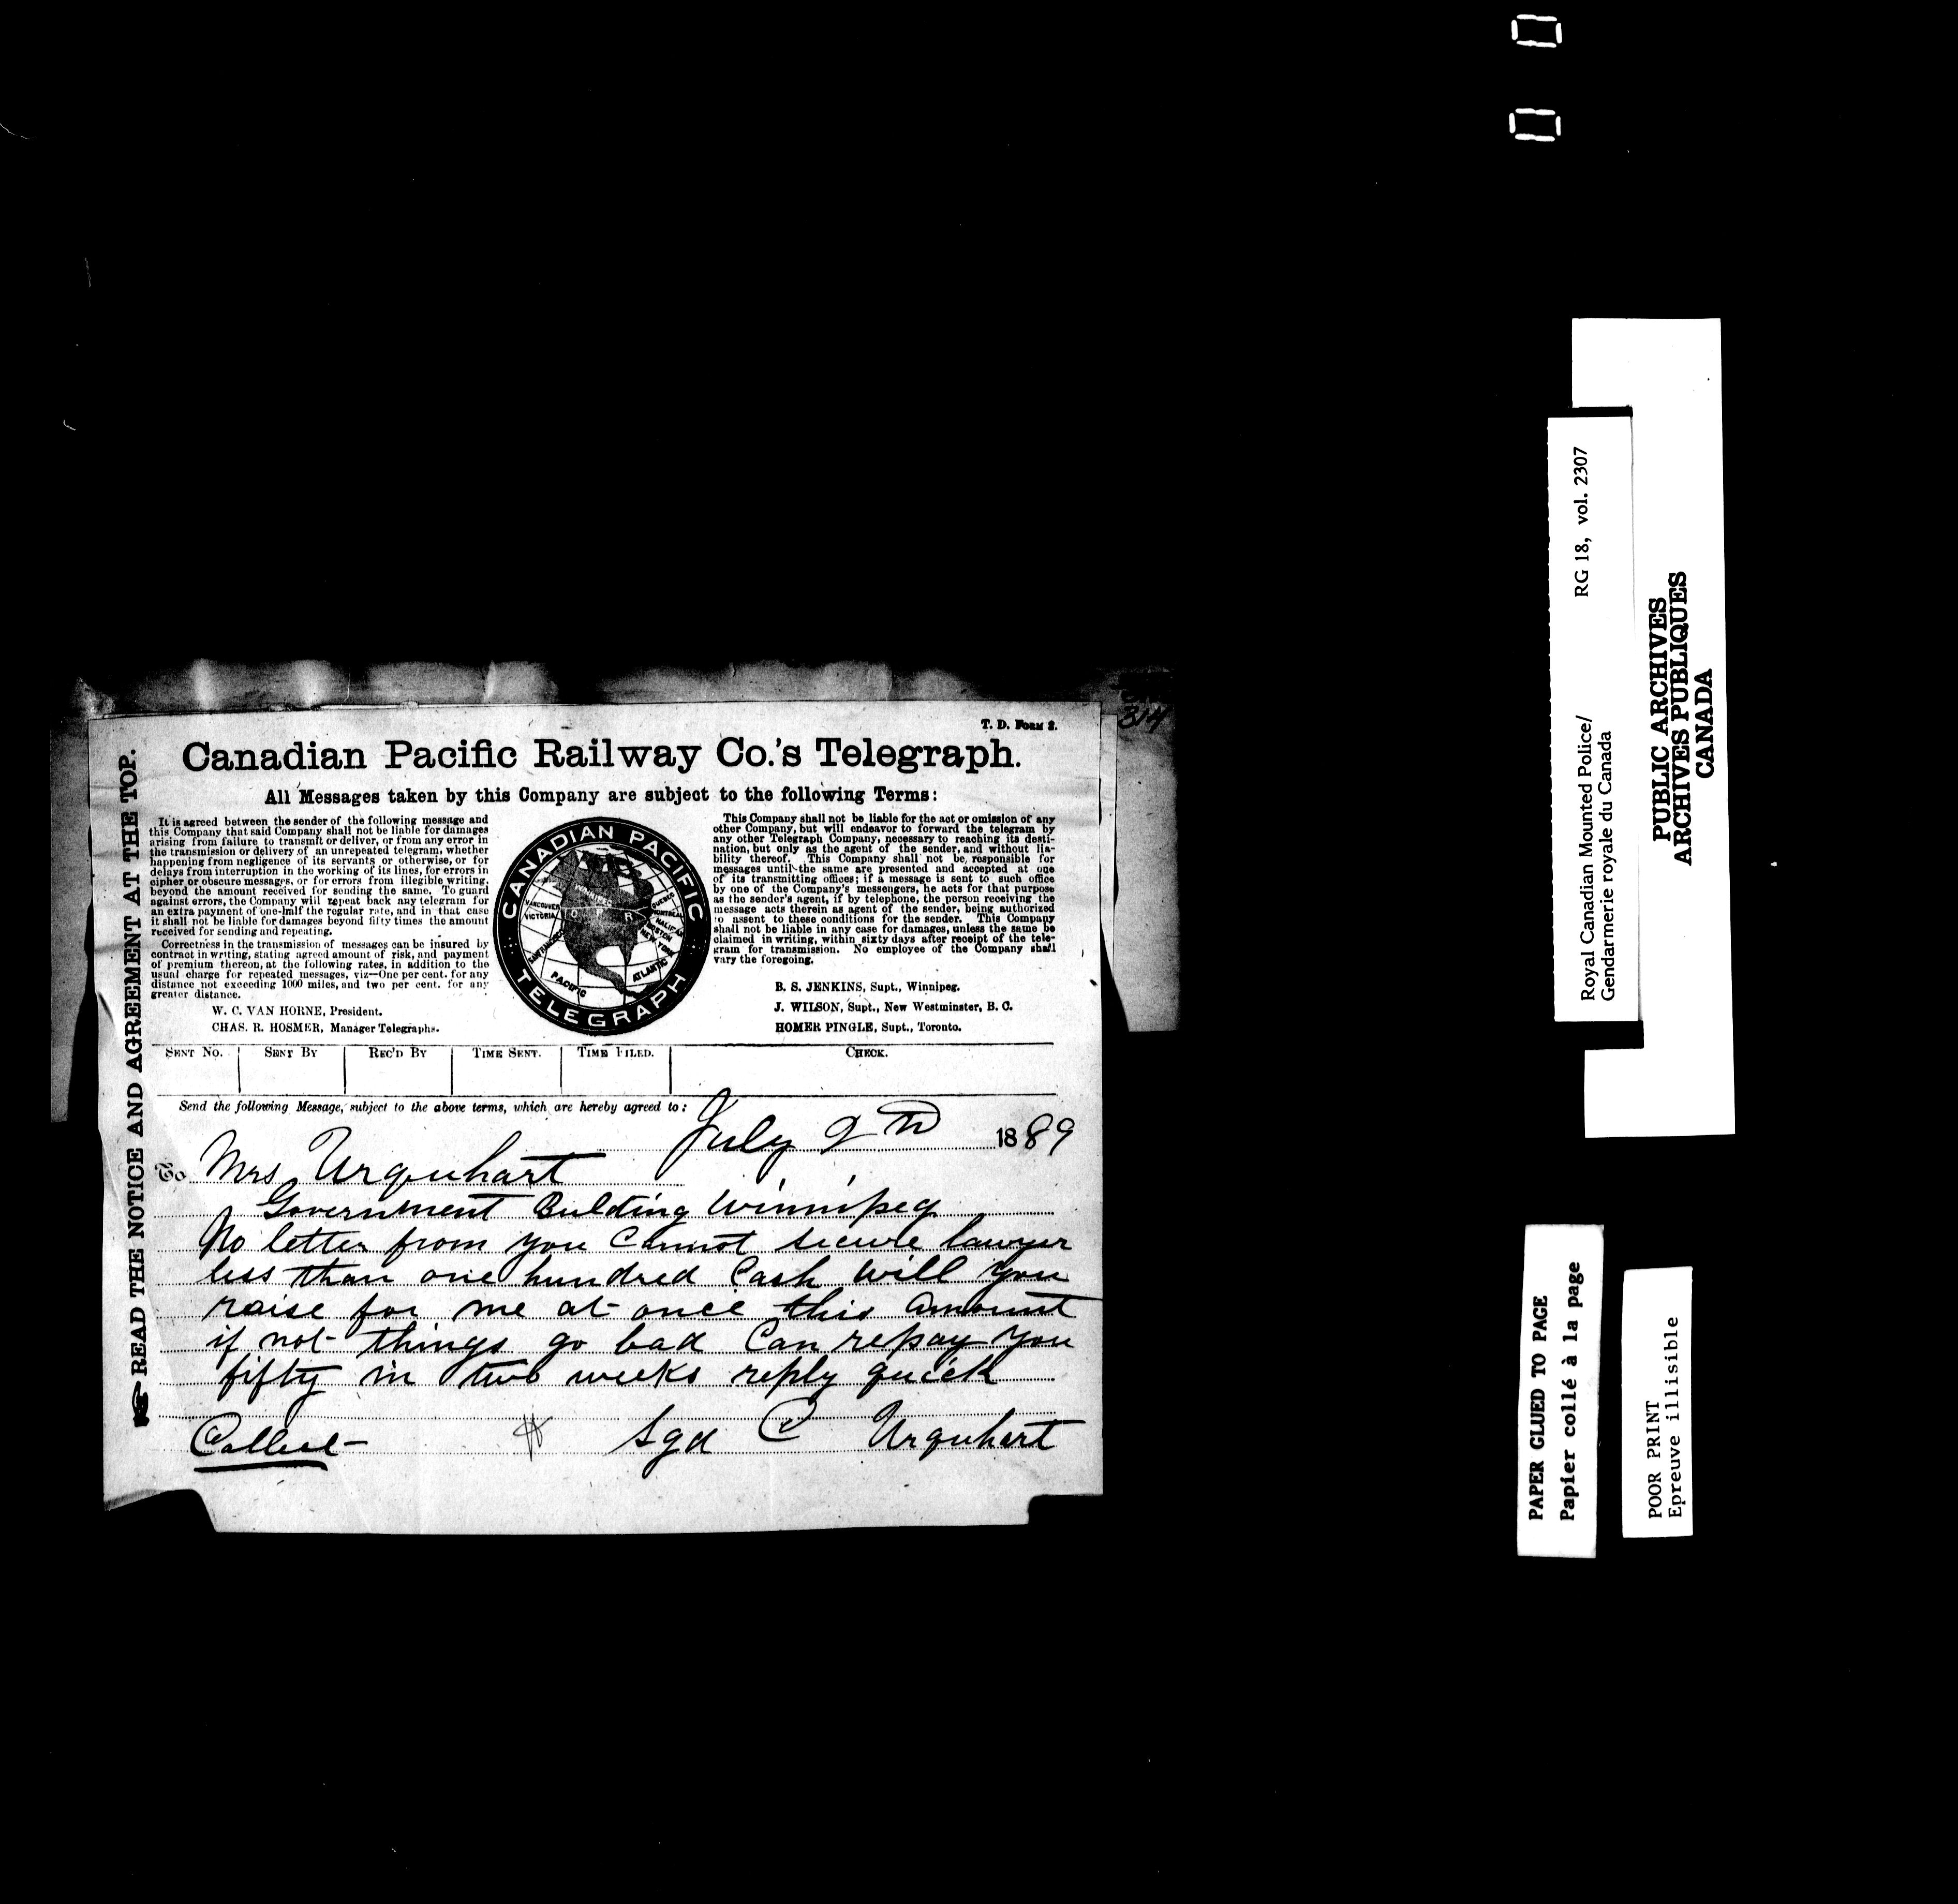 314
T. D. FORM 2.
Canadian Pacific Railway Co.'s Telegraph.
All Messages taken by this Company are subject to the following Terms:
READ THE NOTICE AND AGREEMENT AT THE TOP.
It is agreed between the sender of the following message and
this Company that said Company shall not be liable for damages
arising from failure to transmit or deliver, or from any error in
the transmission or delivery of an unrepeated telegram, whether
happening from negligence of its servants or otherwise, or for
delays from interruption in the working of its lines, for errors in
cipher or obscure messages, or for errors from illegible writing,
beyond the amount received for sending the same. To guard
against errors, the Company will repeat back any telegram for
an extra payment of one-half the regular rate, and in that case
it shall not be liable for damages beyond fifty times the amount
received for sending and repeating.
Correctness in the transmission of messages can be insured by
contract in writing, stating agreed amount of risk, and payment
of premium thereon, at the following rates, in addition to the
usual charge for repeated messages, viz—One per cent. for any
distance not exceeding 1000 miles, and two per cent. for any
greater distance.
W. C. VAN HORNE, President.
CHAS. R. HOSMER, Manager Telegraphs.
CANADIAN PACIFIC
TELEGRAPH
WINNIPEG
VANCOUVER
VICTORIA
QUEBEC
MONTREAL
HALIFAX
BOSTON
NEW YORK
PACIFIC
ATLANTIC
This Company shall not be liable for the act or omission of any
other Company, but will endeavor to forward the telegram by
any other Telegraph Company, necessary to reaching its desti-
nation, but only as the agent of the sender, and without lia-
bility thereof. This Company shall not be responsible for
messages until the same are presented and accepted at one
of its transmitting offices; if a message is sent to such office
by one of the Company's messengers, he acts for that purpose
as the sender's agent, if by telephone, the person receiving the
message acts therein as agent of the sender, being authorized
to assent to these conditions for the sender. This Company
shall not be liable in any case for damages, unless the same be
claimed in writing, within sixty days after receipt of the tele-
gram for transmission. No employee of the Company shall
vary the foregoing.
B. S. JENKINS, Supt., Winnipeg.
J. WILSON, Supt., New Westminster, B. C.
HOMER PINGLE, Supt., Toronto.
SENT NO. SENT BY REC'D BY TIME SENT. TIME FILED. CHECK.
Send the following Message, subject to the above terms, which are hereby agreed to:
July 2nd 1889
To Mrs Urquhart
Government Bulding Winnipeg
No letter from you cannot secure lawyer
less than one hundred Cash will you
raise for me at once this amount
if not things go bad Can repay you
fifty in two weeks reply quick
Collect Sgd C Urquhart
Royal Canadian Mounted Police/ RG 18, vol. 2307
Gendarmerie royale du Canada
PUBLIC ARCHIVES
ARCHIVES PUBLIQUES
CANADA
PAPER GLUED TO PAGE
Papier collé à la page
POOR PRINT
Epreuve illisible